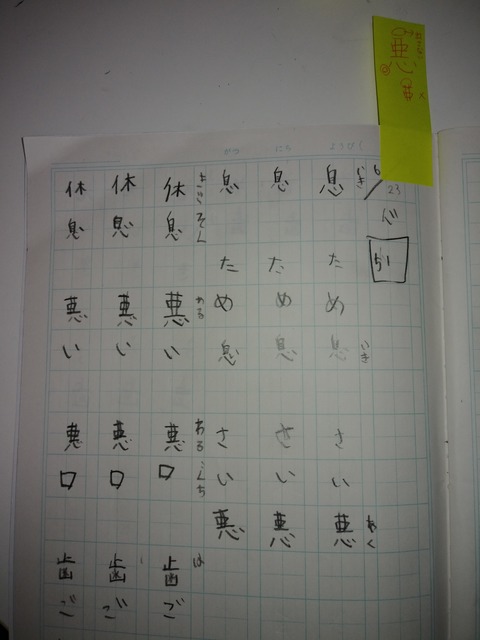 6/23
51
息 ため息 さい悪
いき いき あく
息 ため息 さい悪
息 ため息 さい悪
休息 悪い 悪口 歯ご
そく わる は
休息 悪い 悪口 歯ご
休息 悪い 悪口 歯ご